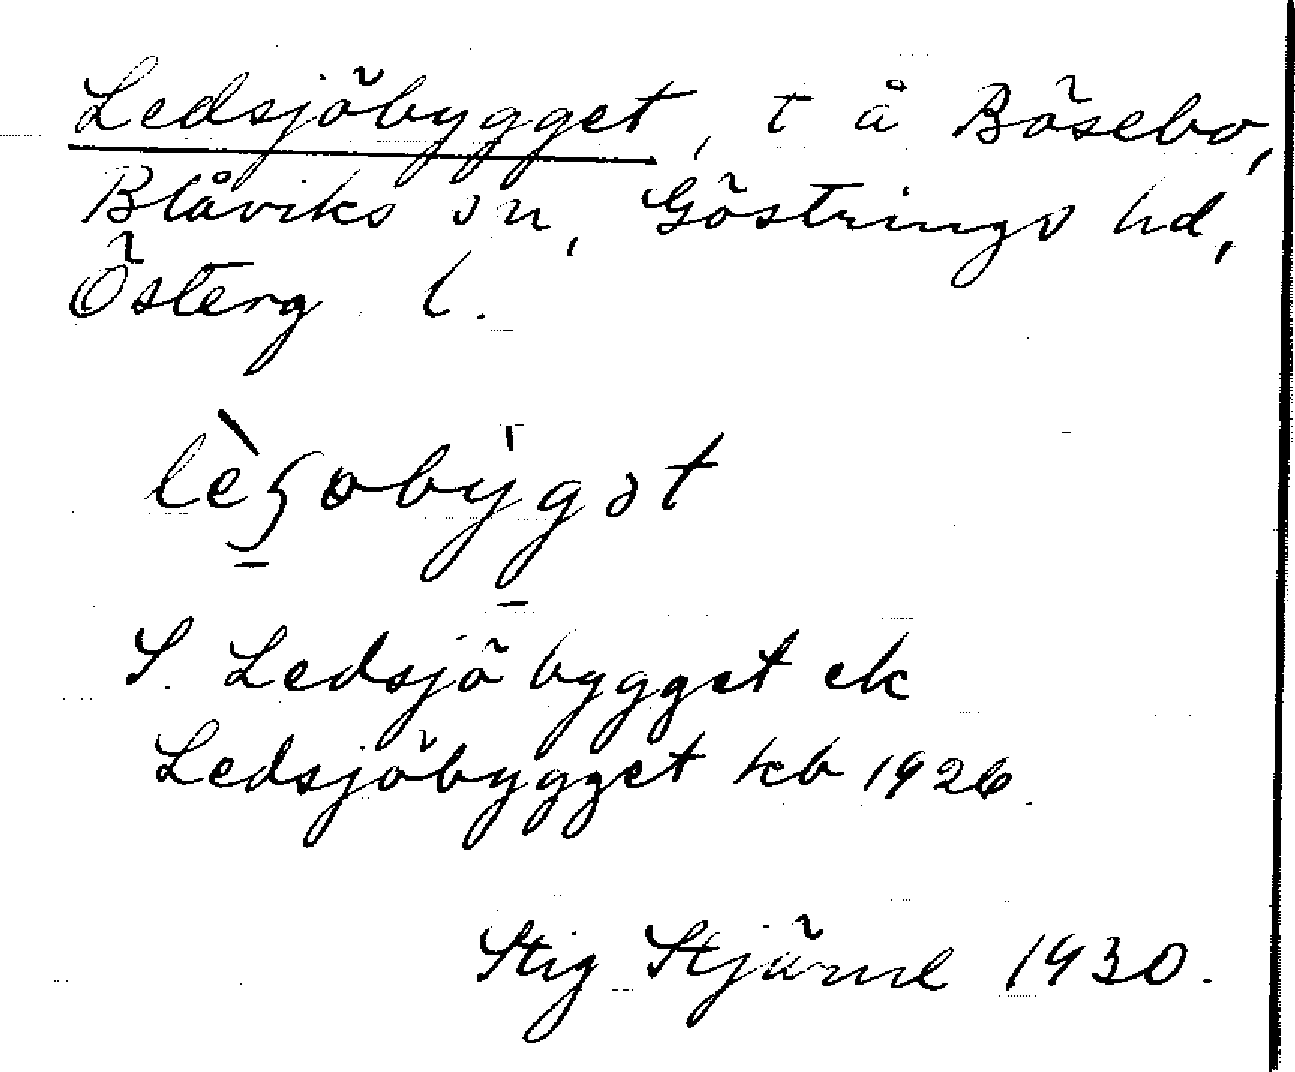 Ledsjöbygget, t å Bösebo,
Blåviks sn, Göstrings hd,
Österg l.
lèʂobýgət
S. Ledsjöbygget ek
Ledsjöbygget kb 1926.
Stig Stjärne 1930.